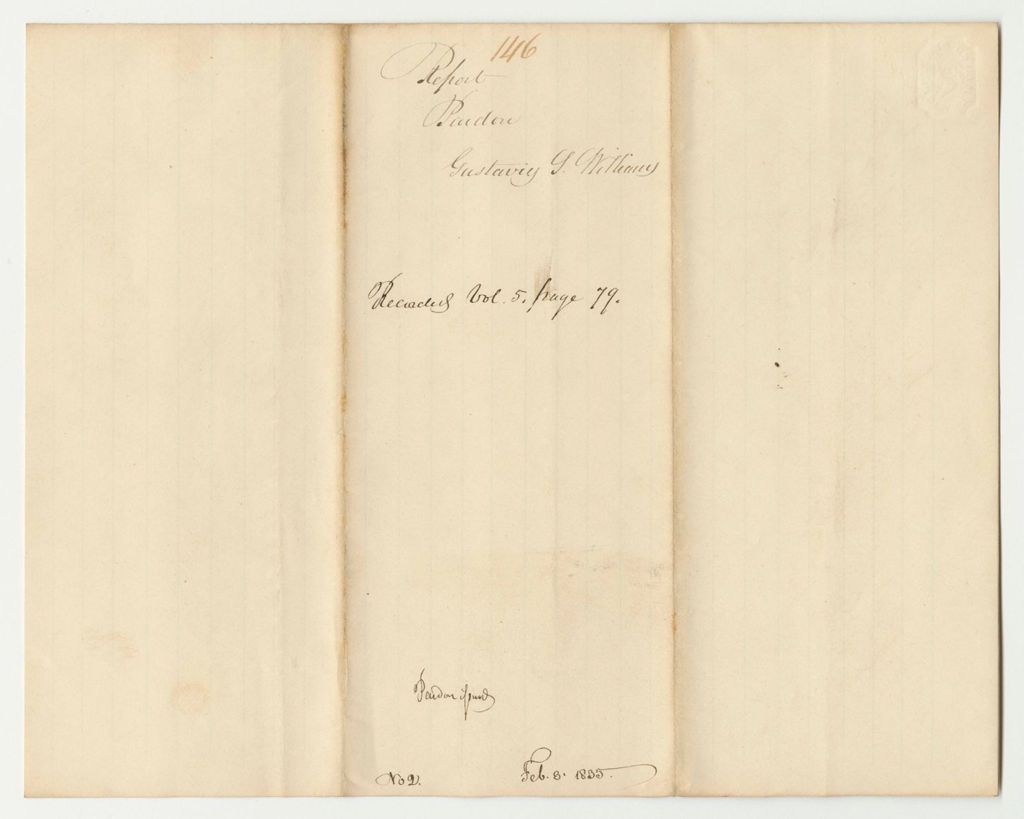 146
Report
Pardon
Gustavus S. Williams
Recorded Vol. 5. page 79.
Pardon issued
No 2. Feb. 8. 1835.